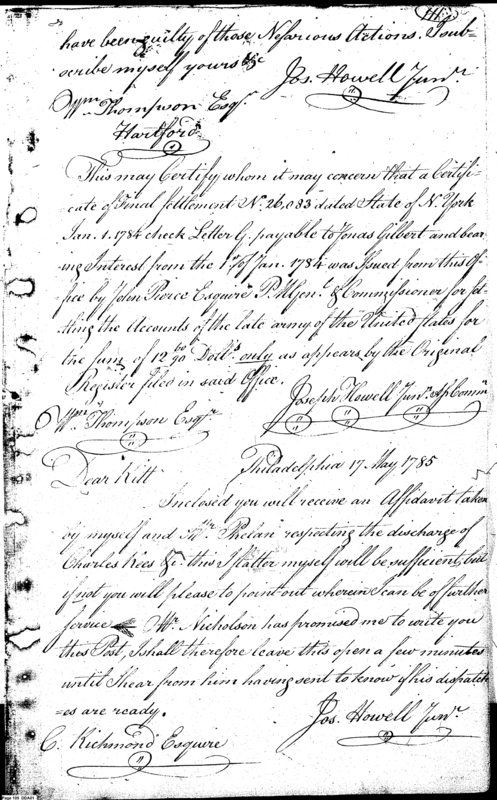 have been guilty of those Nefarious Actions. I sub-
scribe myself yours &c
Jos. Howell Junr.
Wm. Thompson Esqr.
Hartford
This may Certify whom it may concern that a Certifi-
cate of Final settlement No. 26,083 dated State of N. York
Jan. 1. 1784 check Letter G. payable to Jonas Gilbert and bear-
ing Interest from the 1st of Jan. 1784 was Issued from this Of-
fice by John Pierce Esquire P. M Genl. & Commissioner for set-
tling the Accounts of the late army of the United States for
the sum of 12 60/90 Dolls. only as appears by the Original
Register filed in said Office.
Joseph Howell Junr. As Commr
Wm. Thompson Esqr.
Philadelphia 17. May 1785
Dear Kitt
Inclosed you will receive an Affidavit taken
by myself and Mr. Phelan respecting the discharge of
Charles Kees &c. this I flatter myself will be sufficient, but
if not you will please to point out wherein I can be of further
service Mr. Nicholson has promised me to write you
this Post, I shall therefore leave this open a few minutes
until I hear from him having sent to know if his dispatch
=es are ready.
Jos. Howell Junr.
C. Richmond Esquire